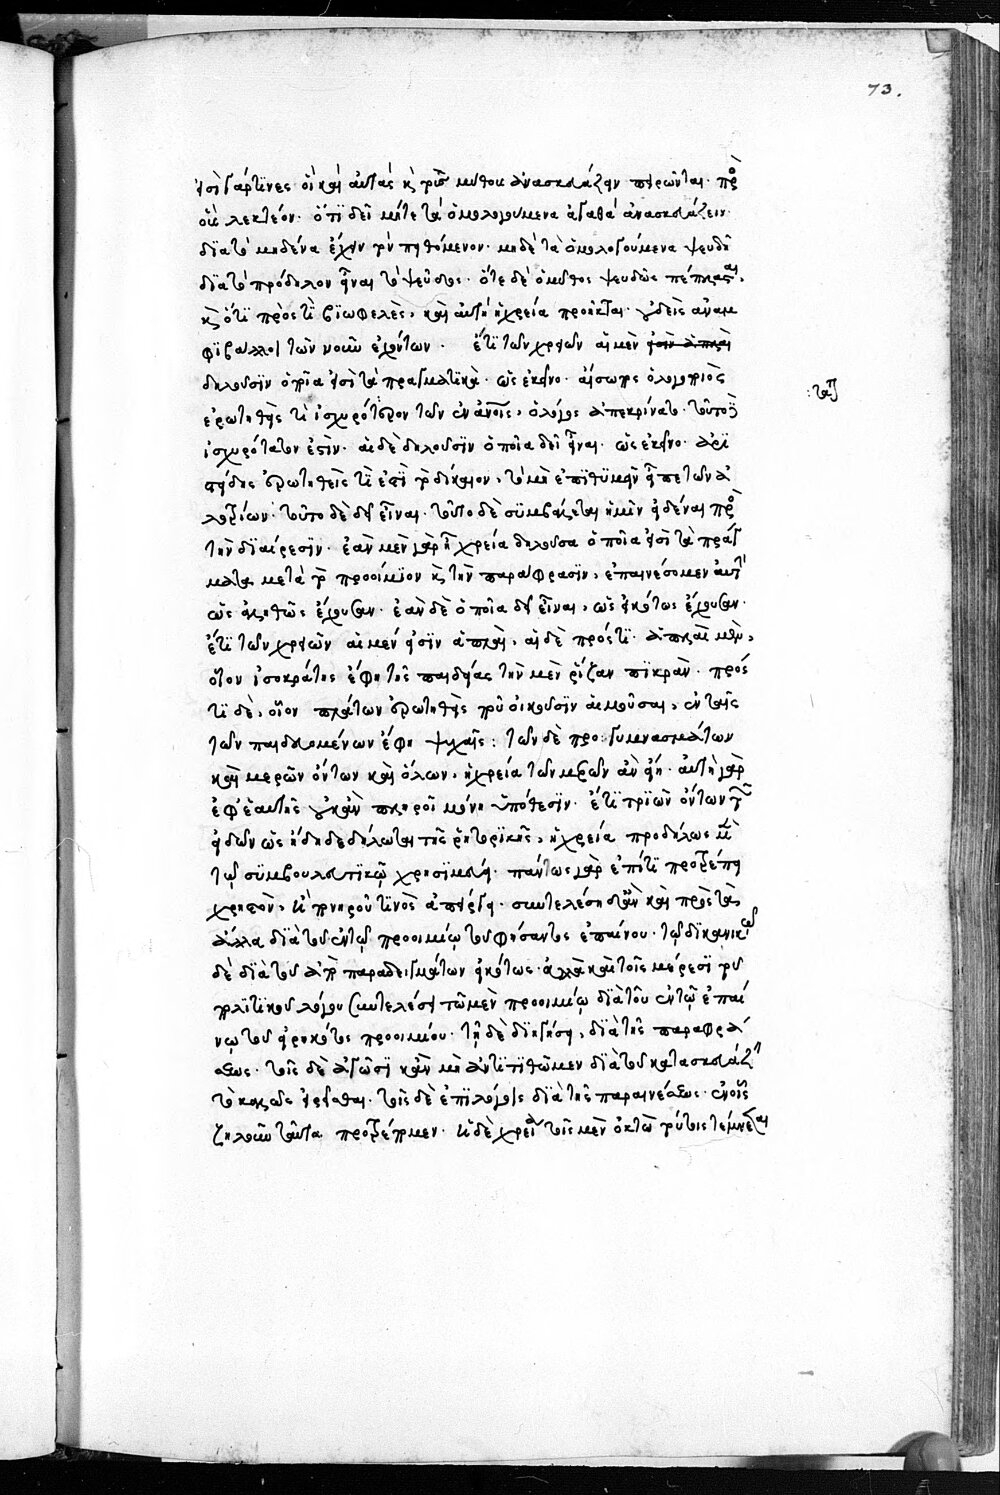 73.
εἰσὶ γάρ τινες οἳ καὶ αὐτὰς κ τοῦ μύθου ἀνασκευάζειν πειρῶνται· πρὸς
οὓς λεκτέον· ὅτι δεῖ μήτε τὰ ὁμολογούμενα ἀγαθὰ ἀνασκευάζειν·
διὰ τὸ μηδένα ἔχειν τὸν πειθόμενον· μηδὲ τὰ ὁμολογούμενα ψευδῆ
διὰ τὸ πρόδηλον εἶναι τὸ ψεῦδος· ὅτε δὲ ὁ μῦθος ψευδὴς πέπλασται,
κ ὅτι πρός τι βιωφελὲς, καὶ αὐτὴ ἡ χρεία προῆκται· οὐδεὶς ἀναμ
φιβάλλει τῶν νοῦν ἐχόντων· ἔτι τῶν χρειῶν αἱ μὲν
δηλοῦσιν ὁποῖά εἰσι τὰ πράγματα· ὡς ἐκεῖνο· αἴσωπος ὁ λογοποιὸς
:τικά
ἐρωτηθεὶς τί ἰσχυρότερον τῶν ἐν ἀνοις, ὁ λόγος ἀπεκρίνατο· τοῦτο
ἰσχυρότατον ἐστὶν· αἱ δὲ δηλοῦσιν ὁποῖα δεῖ εἶναι· ὡς ἐκεῖνο· ἀρι
στείδης ἐρωτηθεὶς τί ἐστὶ τὸ δίκαιον, τὸ μὴ ἐπιθυμεῖν ἔφη τῶν ἀλ
λοτρίων· τοῦτο δὲ δεῖ εἶναι· τοῦτο δὲ συμβάλλεται ἡμῖν εἰδέναι πρὸς
τὴν διαίρεσιν· ἐὰν μὲν γὰρ ἦ χρεία δηλοῦσα ὁποῖα εἰσὶ τὰ πράγ
ματα μετὰ τὸ προοίμιον κ τὴν παράφρασιν, ἐπαινέσομεν αὐτὴν
ὡς ἀληθῶς ἔχουσαν· ἐὰν δὲ ὁποῖα δεῖ εἶναι, ὡς εἰκότως ἔχουσαν·
ἔτι τῶν χρειῶν αἱ μὲν εἰσὶν ἁπλαῖ, αἱ δὲ πρός τι· ἁπλαῖ μὲν,
οἷον ἰσοκράτης ἔφη τῆς παιδείας τὴν μὲν ῥίζαν πικρὰν· πρός
τι δὲ, οἷον πλάτων ἐρωτηθεὶς ποῦ οἰκοῦσιν αἱ μοῦσαι, ἐν ταῖς
τῶν παιδευομένων ἔφη ψυχαῖς: τῶν δὲ προγυμνασμάτων
καὶ μερῶν ὄντων καὶ ὅλων, ἡ χρεία τῶν μερῶν ἂν εἴη· αὐτὴ γὰρ
ἐφ' ἑαυτῆς οὐκ ἂν πληροῖ μόνη ὑπόθεσιν· ἔτι τριῶν ὄντων τῶν
εἰδῶν ὡς ἤδη δεδήλωται τῆς ῥητορικῆς, ἡ χρεία προδήλως μὲν
τῷ συμβουλευτικῷ χρησιμεύει· πάντως γὰρ ἐπί τι προτρέπει
χρηστὸν, ἢ πονηροῦ τινὸς ἀπείργει· συντελέσει δ' ἂν καὶ πρὸς τὰ
ἄλλα διὰ τοῦ ἐν τῷ προοιμίῳ τοῦ φήσαντος ἐπαίνου· τῷ δικανικῷ
δὲ διὰ τοῦ ἀπὸ παραδειγμάτων εἰκότως· ἀλλὰ καὶ τοῖς μέρεσι τοῦ
πολιτικοῦ λόγου συντελέσει τῷ μὲν προοιμίῳ διὰ τοῦ ἐν τῷ ἐπαί
νῳ τοῦ εἰρηκότος προοιμίου· τῇ δὲ διηγήσει, διὰ τῆς παραφρά
σεως· τοῖς δὲ ἀγῶσι κἂν μὴ ἀντιτιθῶμεν διὰ τοῦ κατασκευάζειν
τὸ καλῶς εἰρῆσθαι· τοῖς δὲ ἐπιλόγοις διὰ τῆς παραινέσεως· ἐν οἷς
ζηλοῦν ταῦτα προτρέπομεν· ἡ δὲ χρεία τοῖς μὲν ὀκτὼ τούτοις τέμνεται